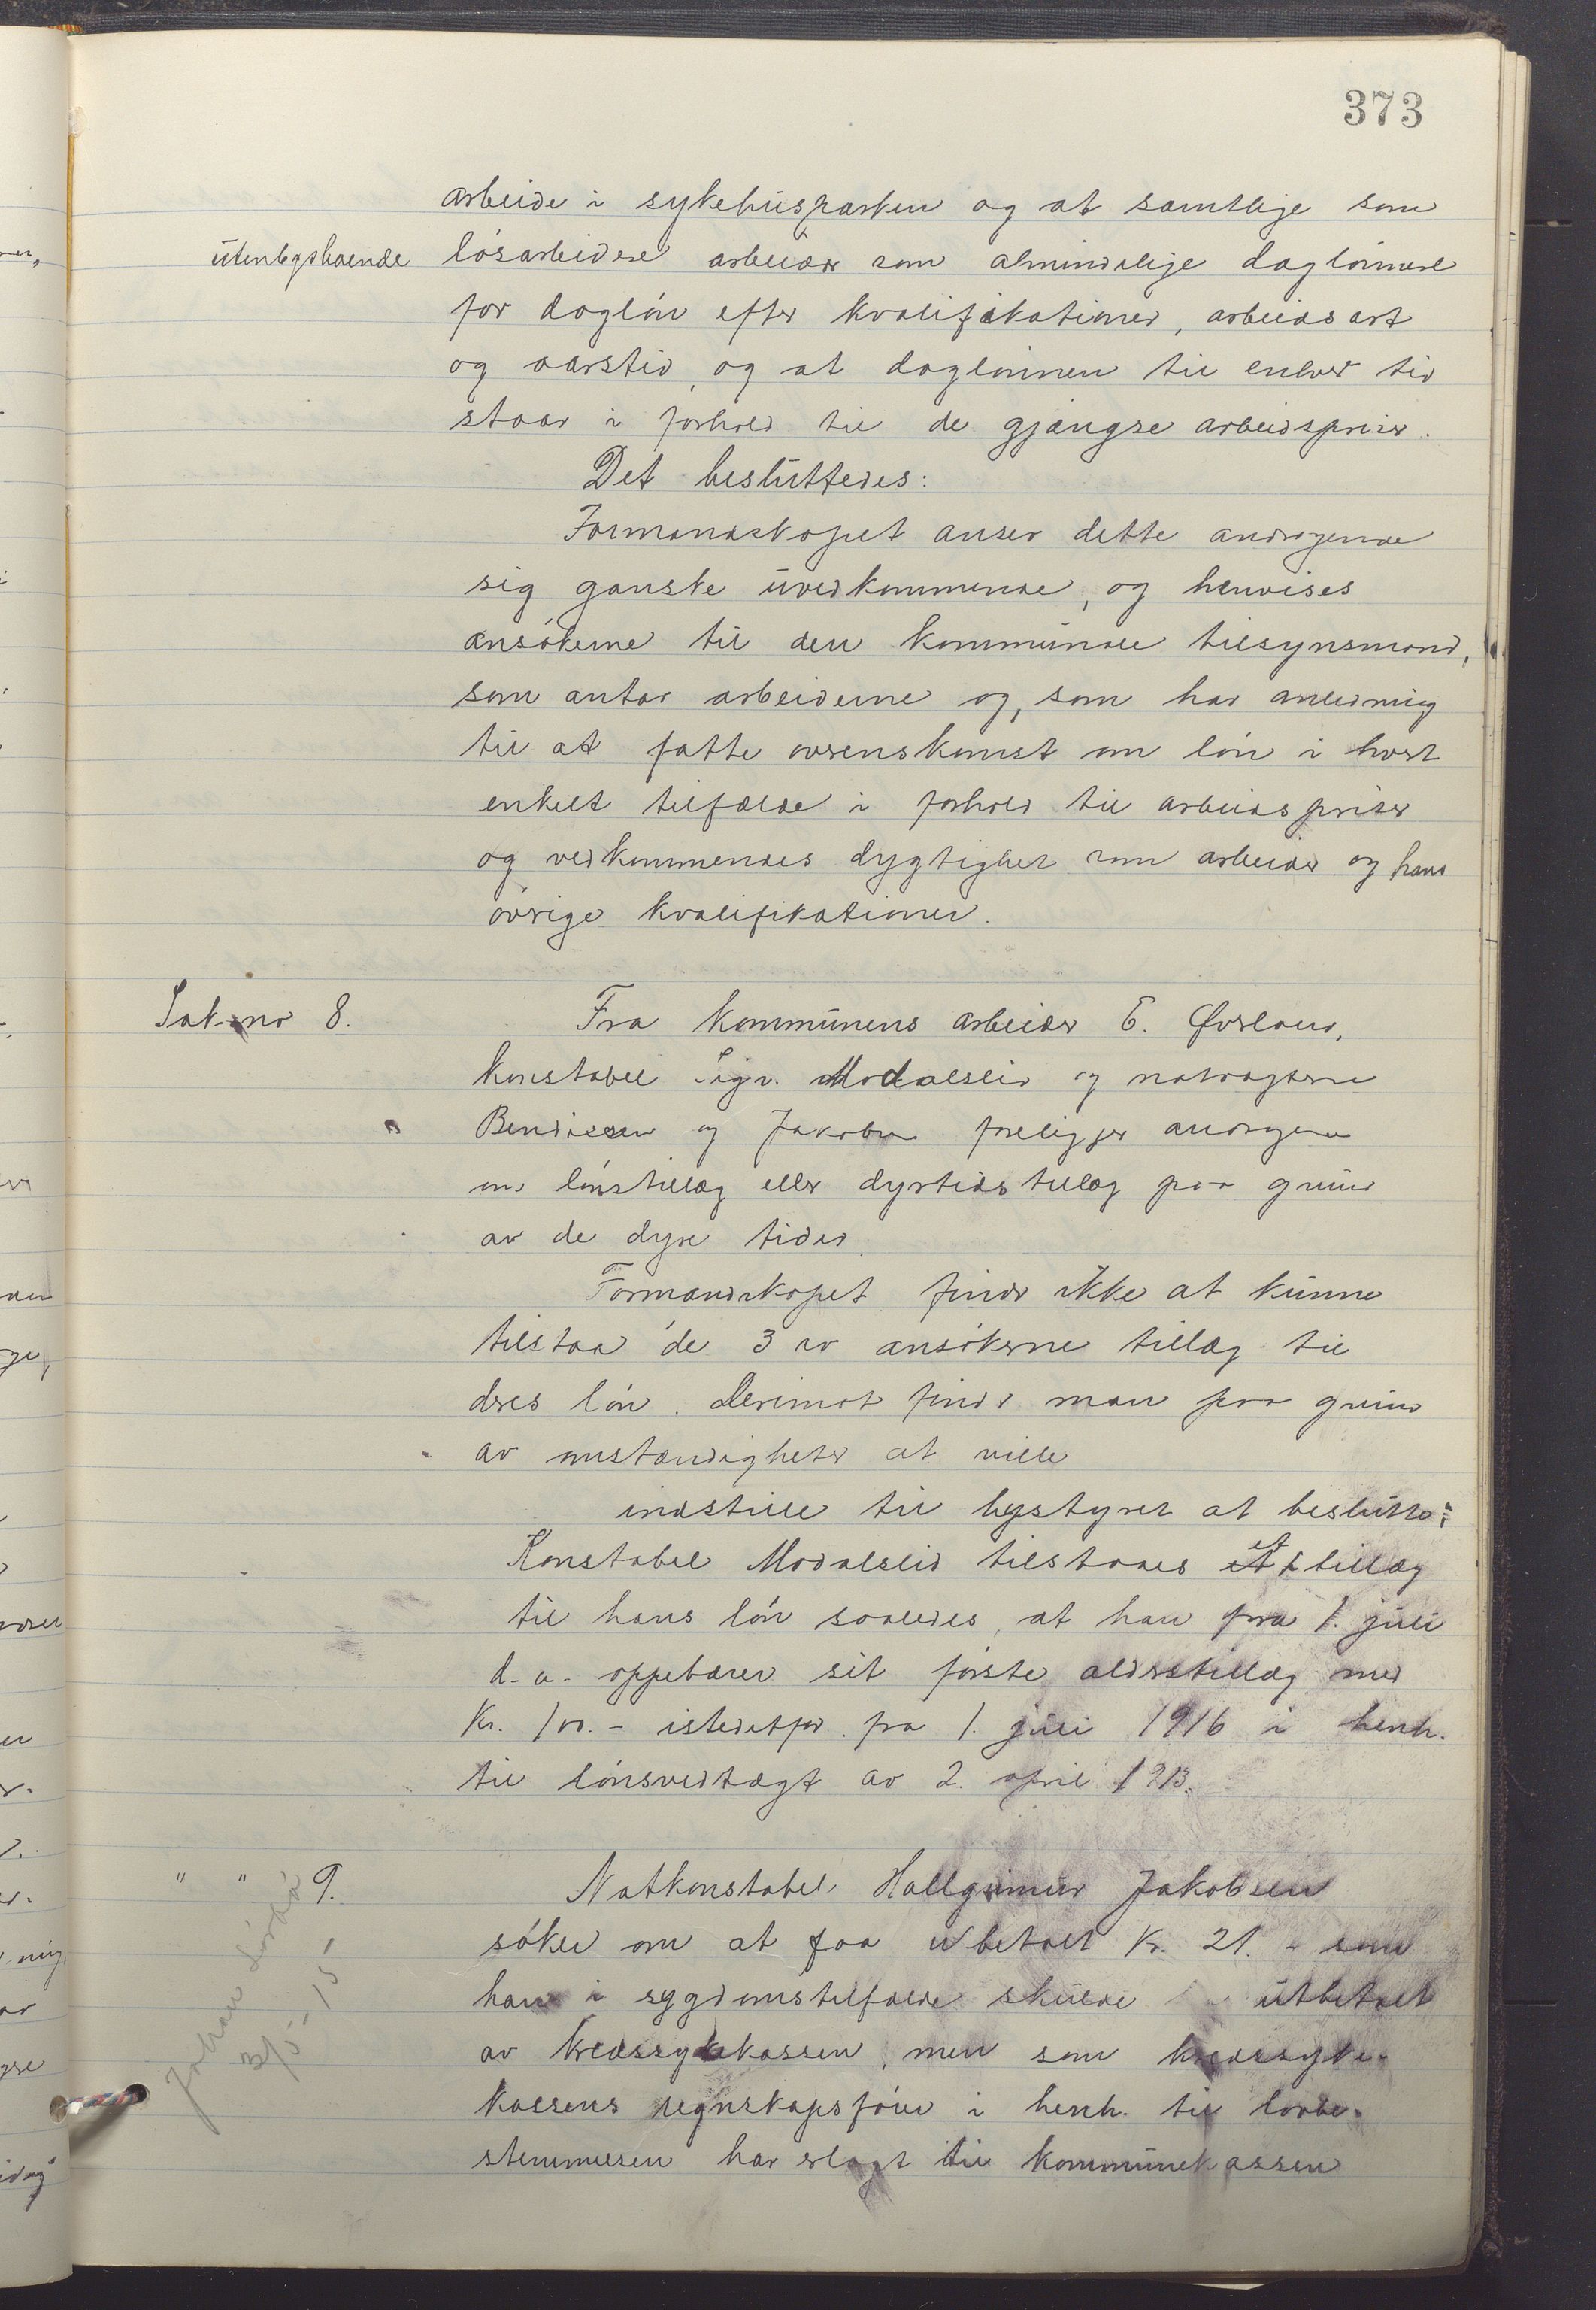 373
arbeide i sykehusparken og at samtlige som
utenbyshaende løsarbeidere arbeider som almindelige daglønnere
for dagløn efter kvalifikationer, arbeidsart
og aarstid, og at daglønnen til enhver tid
staar i forhold til de gjængse arbeidspriser.
Det besluttedes:
Formandskapet anser dette andragende
sig ganske uvedkommende, og henvises
ansøkerne til den kommunale tilsynsmand,
som antar arbeiderne og, som har anledning
til at fatte overenskomst om løn i hvert
enkelt tilfælde i forhold til arbeidspriser
og vedkommendes dygtighet som arbeider og hans
øvrige kvalifikationer.
Sak no 8.
Fra kommunens arbeider E. Øvsland,
konstabel Sigv. Modalsli og natvagterne
Bendiksen og Jakobsen foreligger andragende
om lønstillæg eller dyrtidstillæg paa grund
av de dyre tider.
Formandskapet finder ikke at kunne
tilstaa de 3 av ansøkerne tillæg til
deres løn. Derimot finder man paa grund
av omstændigheter at ville
indstille til bystyret at beslutte:
Konstabel Modalslid tilstaaes et tillæg
til hans løn saaledes, at han fra 1. juli
d. a. oppebærer sit første alderstillæg med
Kr. 100.- istedetfor fra 1. juli 1916 i henh.
til lønsvedtægt av 2. april 1913.
" " 9.
Natkonstabel Hallgrimur Jakobsen
søker om at faa utbetalt Kr. 21.- som
han i sygdomstilfælde skulde utbetalt
av kredssykekassen, men som kredssyke-
kassens regnskapsfører i henh. til lovbe-
stemmelsen har erlagt til kommunekassen
3/5-15